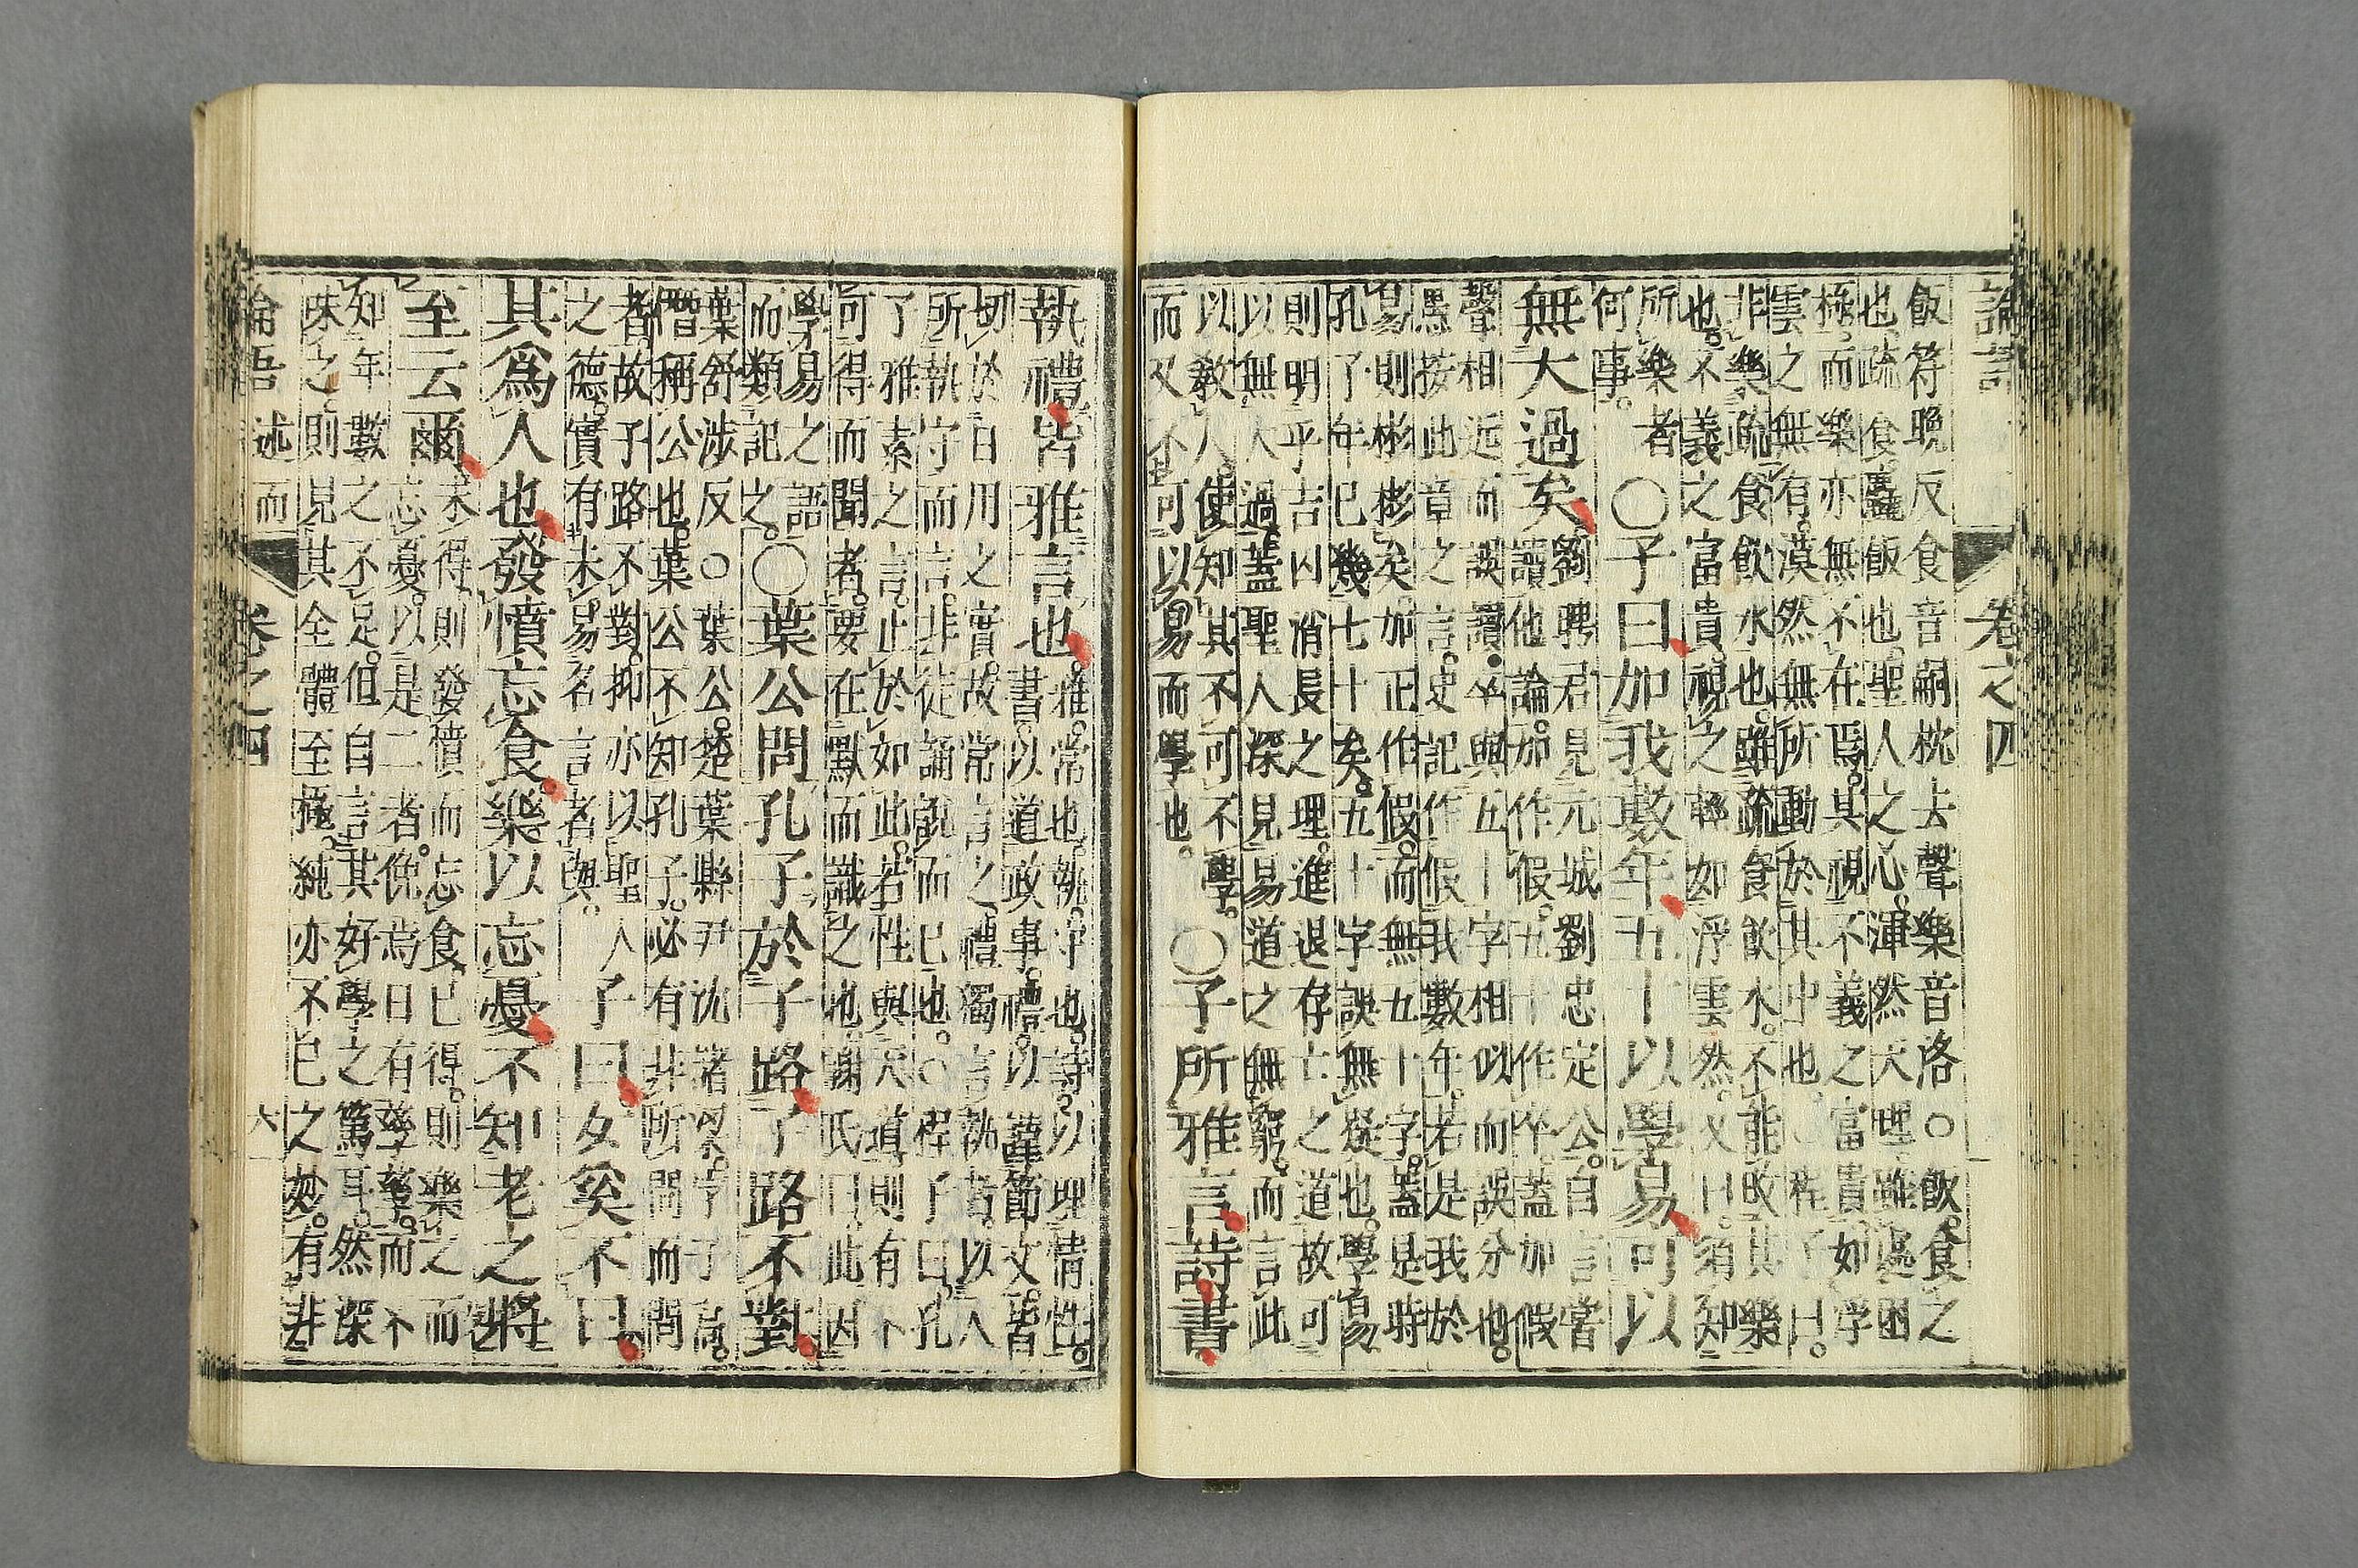 論語 卷之四
飯符晚反食音嗣枕去聲樂音洛○飲。食之
也。疏食。麤飯也。聖人之心。渾然天理。雖處困
極。而樂亦無不在焉。其視不義之富貴。如浮
雲之無有。漠然無所動於其中也。○程子曰。
非樂疏食飲水也。雖疏食飲水。不能改其樂
也。不義之富貴。視之輕如浮雲然。又曰。須知
所樂者
何事。
○子曰加我數年五十以學易可以
無大過矣
劉聘君見元城劉忠定公。自言嘗
讀他論。加作假。五十作卒。蓋加假
聲相近而誤讀。卒與五十字相似而誤分也。
愚按此章之言。史記作假我數年。若是我於
易則彬彬矣。加正作假。而無五十字。蓋是時
孔子年已幾七十矣。五十字誤無疑也。學易
則明乎吉凶消長之理。進退存亡之道故可
以無大過。蓋聖人深見易道之無窮。而言此
以教人。使知其不可不學。
而又不可以易而學也。
○子所雅言詩書
執禮皆雅言也
雅。常也。執。守也。詩。以理情性。
書。以道政事。禮。以謹節文。皆
切於日用之實。故常言之。禮獨言執者。以人
所執守而言。非徒誦說而已也。○程子曰。孔
子雅素之言。止於如此。若性與天道。則有不
可得而聞者。要在默而識之也。謝氏曰。此因
學易之語
而類記之。
○葉公問孔子於子路子路不對
葉舒涉反○葉公。楚葉縣尹沈諸梁。字子高。
僭稱公也。葉公不知孔子。必有非所問而問
者。故子路不對。抑亦以聖人
之德。實有未易名言者與。
子曰女奚不曰
其爲人也發憤忘食樂以忘憂不知老之將
至云爾
未得。則發憤而忘食。已得。則樂之而
忘憂。以是二者。俛焉日有孳孳。而不
知年數之不足。但自言其好學之篤耳。然深
味之。則見其全體至極。純亦不已之妙。有非
論吾 述而 卷之四 六